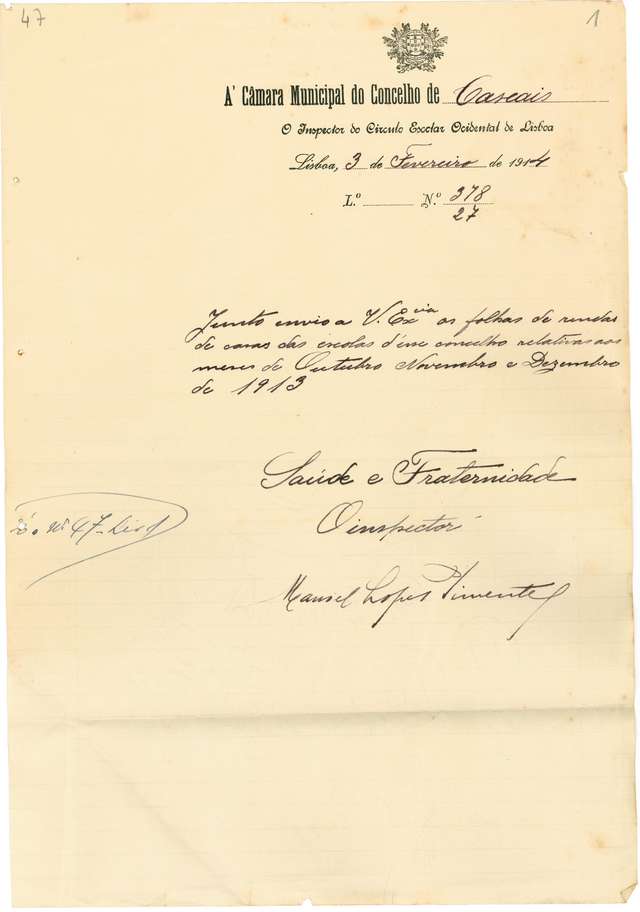 47
1
A' Câmara Municipal do Concelho de Cascais
O Inspector do Circulo Escolar Ocidental de Lisboa
Lisboa, 3 de Fevereiro de 1914
L.º Nº 378
27
Junto envio a V. Excia as folhas de rendas
de casas das escolas d'esse concelho relativas aos
meses de Outubro Novembro e Dezembro
de 1913
Saúde e Fraternidade
O inspector
Manoel Lopes Pimentel
nº 47